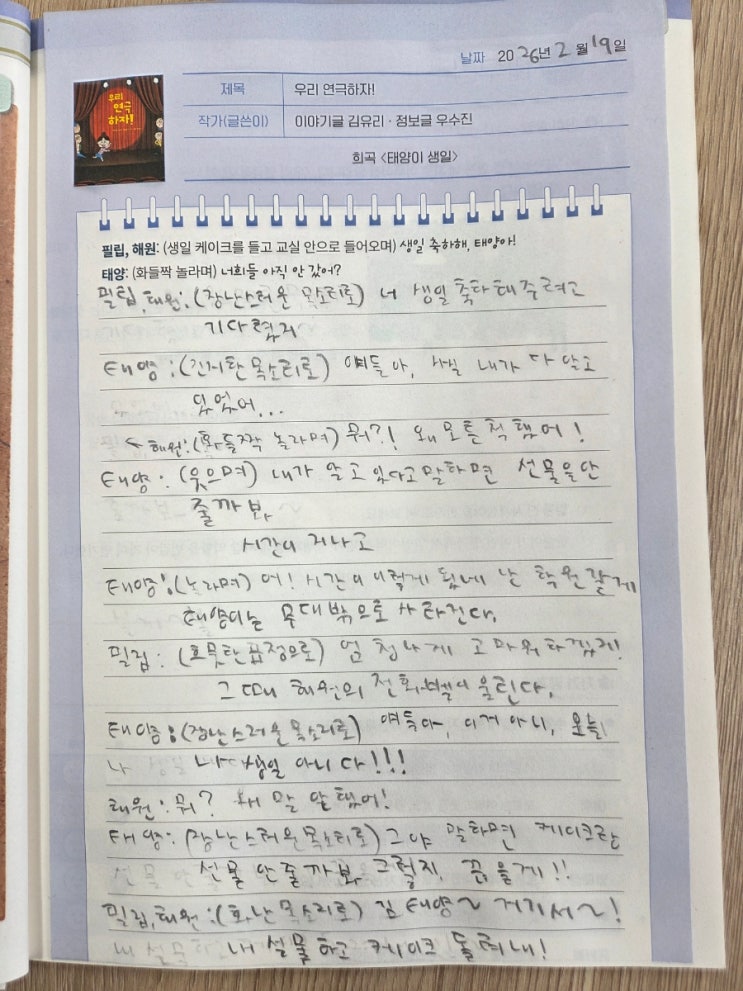 날짜 2026년 2월 19일
우리
연극
하자!
제목 우리 연극하자!
작가(글쓴이) 이야기글 김유리 · 정보글 우수진
희곡 <태양이 생일>
필립, 해원: (생일 케이크를 들고 교실 안으로 들어오며) 생일 축하해, 태양아!
태양: (화들짝 놀라며) 너희들 아직 안 갔어?
필립, 해원: (장난스러운 목소리로) 너 생일 축하해주려고
기다렸지
태양: (진지한 목소리로) 얘들아, 사실 내가 다 알고
있었어...
해원: (화들짝 놀라며) 뭐?! 왜 모른 척 했어!
태양: (웃으며) 내가 알고 있다고 말하면 선물을 안
줄까 봐,
시간이 지나고
태양: (놀라며) 어! 시간이 이렇게 됬네 난 학원 갈게
태양이는 무대 밖으로 사라진다.
필립: (흐뭇한 표정으로) 엄청나게 고마워 하겠네!
그 때 해원의 전화벨이 울린다.
태양: (장난스러운 목소리로) 얘들아, 이거 아니, 오늘
나 생일 아니다!!!
해원: 뭐? 왜 말 안 했어!
태양: (장난스러운 목소리로) 그야 말하면 케이크랑
선물 안 줄까 봐 그렇지, 끊을게!!
필립, 해원: (화난 목소리로) 김태양~ 거기서~!
내 선물하고 케이크 돌려내!